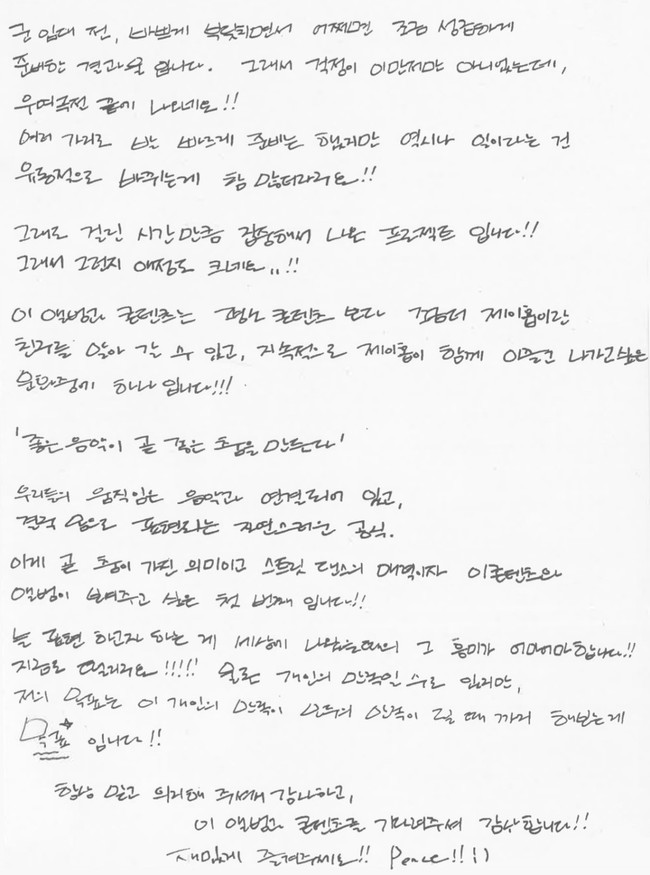 군 입대 전, 바쁘게 부딪히면서 어쩌면 조금 성급하게
준비한 결과물 입니다. 그래서 걱정이 이만저만 아니었는데,
우여곡절 끝에 나오네요!!
여러 가지로 발 빠르게 준비는 했지만 역시나 일이라는 건
유동적으로 바뀌는게 참 많더라구요!!
그래도 걸린 시간만큼 집중해서 나온 프로젝트 입니다!!
그래서 그런지 애정도 크네요..!!
이 앨범과 콘텐츠는 그 어떤 콘텐츠 보다 좀 더 제이홉이란
친구를 알아 갈 수 있고, 지속적으로 제이홉이 함께 이끌고 나가고 싶은
문화중에 하나 입니다!!!
'좋은 음악이 곧 좋은 춤을 만든다'
우리들의 움직임은 음악과 연결되어 있고,
결국 춤으로 표현되는 자연스러운 공식.
이게 곧 춤이 가진 의미이고 스트릿 댄스의 매력이자 이 콘텐츠와
앨범이 보여주고 싶은 첫 번째 입니다!!
늘 표현 하고자 하는 게 세상에 나왔을때의 그 흥미가 어마어마합니다!!
지금도 떨리구요!!!!! 물론 개인의 만족일 수도 있지만,
저의 목표는 이 개인의 만족이 모두의 만족이 될 때 까지 해보는게
목표 입니다!!
항상 믿고 의지해 주셔서 감사하고,
이 앨범과 콘텐츠를 기다려주셔 감사합니다!!
재밌게 즐겨주세요!! Peace!! :)